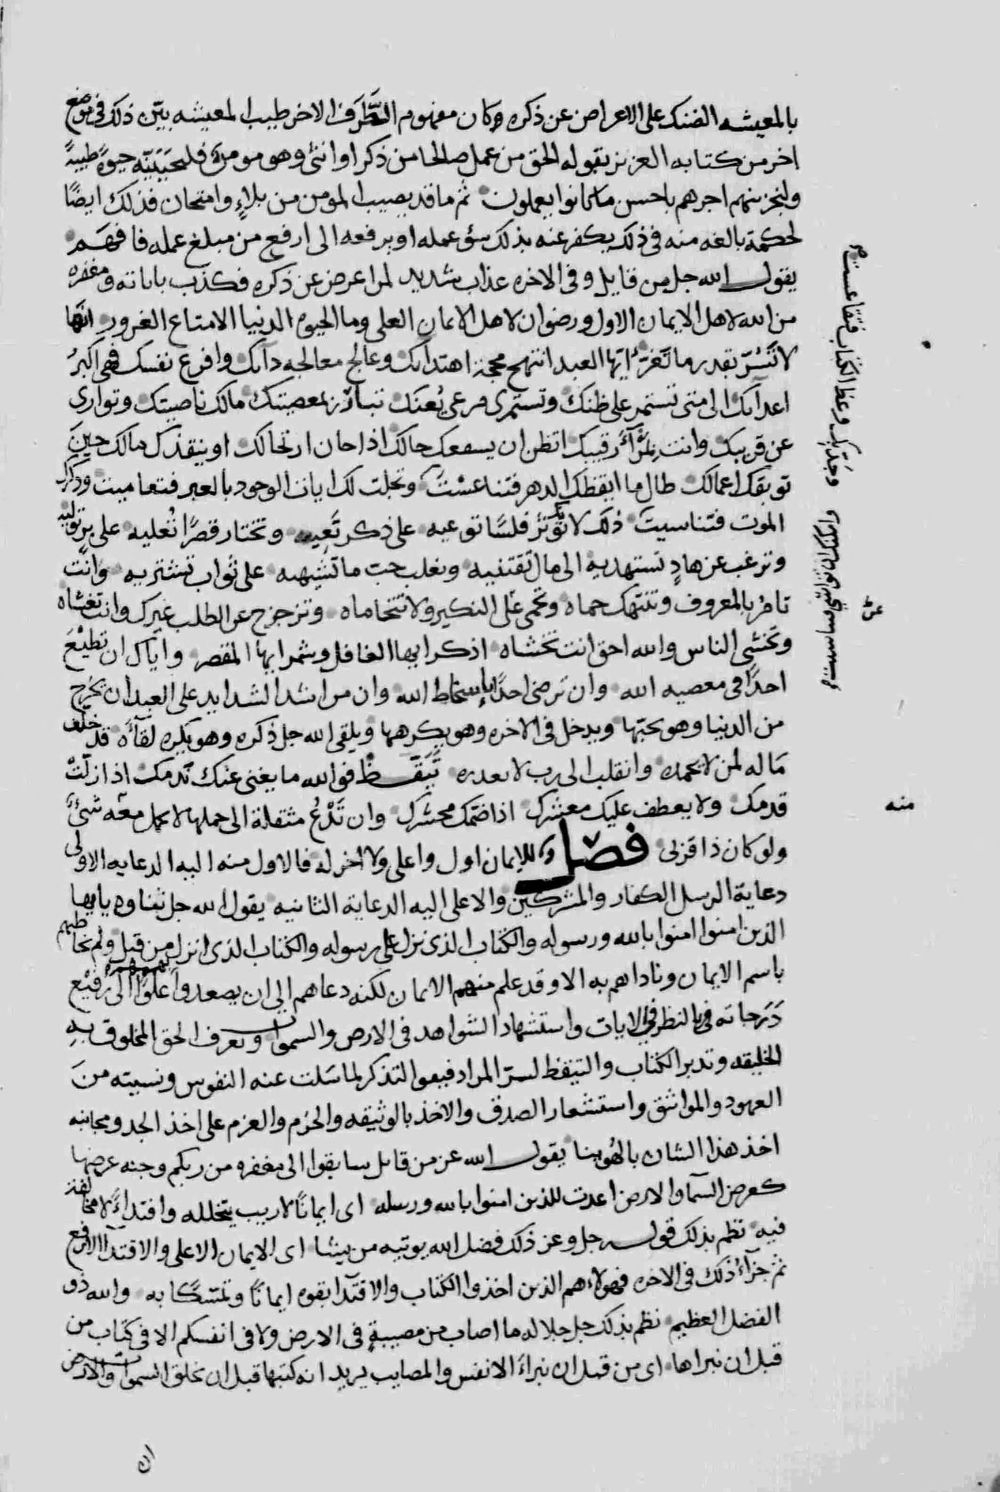 بالمعيشه الضنك على الاعراض عن ذكره وكان مفهوم الطرف الاخر طيب المعيشه بيّن ذلك فى موضع
اخر من كتابه العزيز بقوله الحق من عمل صالحا من ذكر او انثى وهو مومن فلنحيينّه حيوةً طيبةً
ولنجزينهم اجرهم باحسن ما كانوا يعملون ثم ما قد يصيب المومن من بلاءٍ وامتحان فذلك ايضًا
لحكمة بالغه منه فى ذلك يكفر عنه بذلك سؤ عمله او يرفعه الى ارفع من مبلغ عمله فافهم
يقول الله جل من قايل وفى الاخره عذاب شديد لمن اعرض عن ذكره فكذب باياته ومغفره
من الله لاهل الايمان الاول ورضوان لاهل الايمان العلى وما الحيوه الدنيا الا متاع الغرور
لا تُسرّ بقدر ما تغرّ ايها العبد انتهج محجة اهتدائك وعالج معالجه دائك وافرع نفسك فهى اكبر
اعدائك الى متى تستمر على ظنك وتستمرى مرعى بُعنك تبارز بمعصيتك مالك ناصيتك وتوارى
عن قريبك وانت بمرآى رقيبك اتظن ان يسفعك حالك اذا حان ارتحالك او ينقذك مالك حين
توبقك اعمالك طال ما ايقظك الدهر فتناعست وتجلت لك ايات الوجود بالعبر فتعاميت وذكرك
الموت فتناسيت ذلك لا توثر فلسًا توعيه على ذكر تعيه وتختار قصرًا تُعليه على برّ توليه
وترغب عن هادٍ تستهديه الى مال تقتنيه وتغلب حب ما تشتهيه على ثواب تشتريه وانت
تامر بالمعروف وتنتهك حماه وتحمى على النكير ولا تتحاماه وتزحزح عن الطلب غيرك وانت تغشاه
وتخشى الناس والله احق انت تخشاه اذكر ايها الغافل وشمر ايها المقصر واياك ان تطيع
احدًا فى معصيه الله وان ترضى احدًا باسخاط الله وان من اشد الشدايد على العبد ان يخرج
من الدنيا وهو يحبّها ويدخل فى الاخره وهو يكرهها ويلقى الله جل ذكره وهو يكره لقآءه قد خلف
ماله لمن لا يحمده وانقلب الى رب لا يعدره تيقظ فو الله ما يغنى عنك ندمك اذا زلّت
قدمك ولا يعطف عليك معشرك اذا ضمّك محشرك وان تدعُ مثقلة الى حملها لا يحمل معه شئٌ
ولو كان ذا قربى فصل وللايمان اول واعلى ولا اخر له فالاول منه اليه الدعايه الاولى
دعاية الرسل الكفار والمشركين والاعلى اليه الدعاية الثانيه يقول الله جل ثناوه يا ايها
الذين امنوا امنوا بالله ورسوله والكتاب الذى نزل على رسوله والكتاب الذى انزل من قبل ولم يخاطبهم
باسم الايمان وناداهم به الا وقد علم منهم الايمان لكنه دعاهم الى ان يصعدوا علوًا الى رفيع
درجاته فى بالنظر فى الايات واستشهاد الشواهد فى الارض والسموات وتعرف الحق المخلوق به
الخليقه وتدبر الكتاب والتيقظ لسرّ المراد فيعوا التذكر لما سَلت عنه النفوس ونسيته من
العهود والمواثيق واستشعار الصدق والاخذ بالوثيقه والحزم والعزم على اخذ الجد ومجانبه
اخذ هذا الشان بالهُوينا يقول الله عز من قائل سابقوا الى مغفره من ربكم وجنه عرضها
كعرض السمآ والارض اعدت للذين امنوا بالله ورسله اى ايمانًا لا ريب يتخلله واقتداءً لا مخالفة
فيه نظم بذلك قوله جل وعز ذلك فضل الله يوتيه من يشا اى الايمان الاعلى والاقتدآ الارفع
ثم جزآء ذلك فى الاخره فهولاء هم الذين اخذوا الكتاب والاقتدآ بقوه ايمانًا وتمسّكًا به والله ذو
الفضل العظيم نظم بذلك جل جلاله ما اصاب من مصيبةٍ فى الارض ولا فى انفسكم الا فى كتاب من
قبل ان نبراها اى من قبل ان نبراء الانفس والمصايب يريد انه كتبها قبل ان خلق السموات والارض
وجذبك وعظ الكتاب فتقاعست
منه
ان